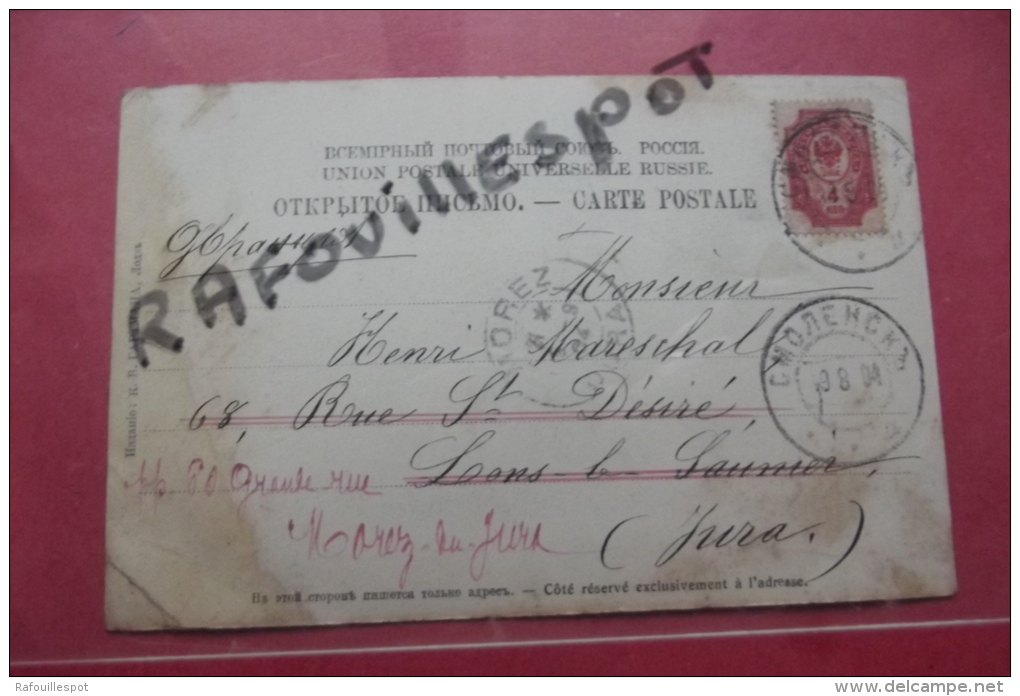 RAFOUILLESPOT
ВСЕМІРНЫЙ ПОЧТОВЫЙ СОЮЗЪ. РОССІЯ.
UNION POSTALE UNIVERSELLE RUSSIE.
ОТКРЫТОЕ ПИСЬМО. — CARTE POSTALE
Франція
Monsieur
Henri Mareschal
68, Rue St Désiré
Lons-le-Saunier,
(Jura.)
60 Grande rue
Morez-du-Jura
MOREZ
СМОЛЕНСКЪ
8 8 04
4
Изданіе:
Лодзь
На этой сторонѣ пишется только адресъ. — Côté réservé exclusivement à l'adresse.
Rafouillespot
delcampe.net